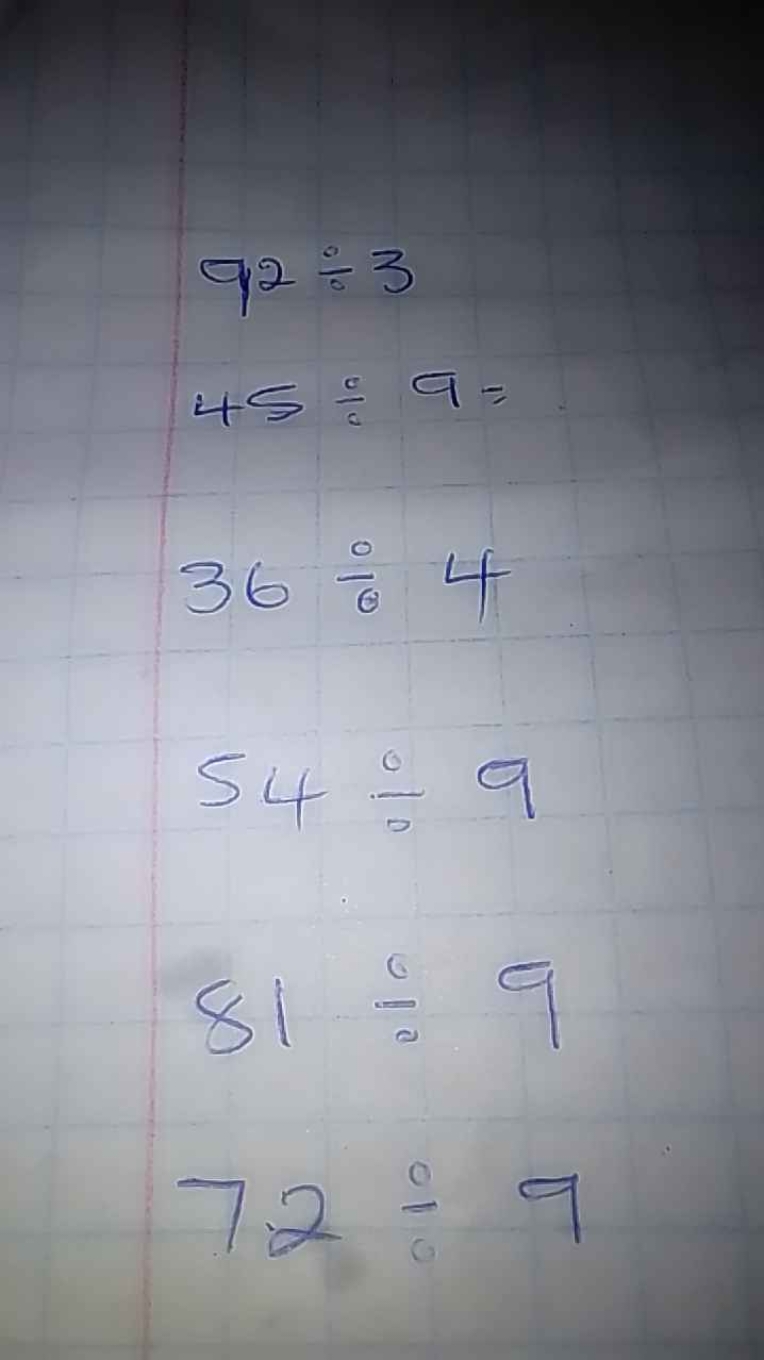 92 ÷ 3
45 ÷ 9 =
36 ÷ 4
54 ÷ 9
81 ÷ 9
72 ÷ 9